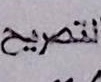 لتصريح